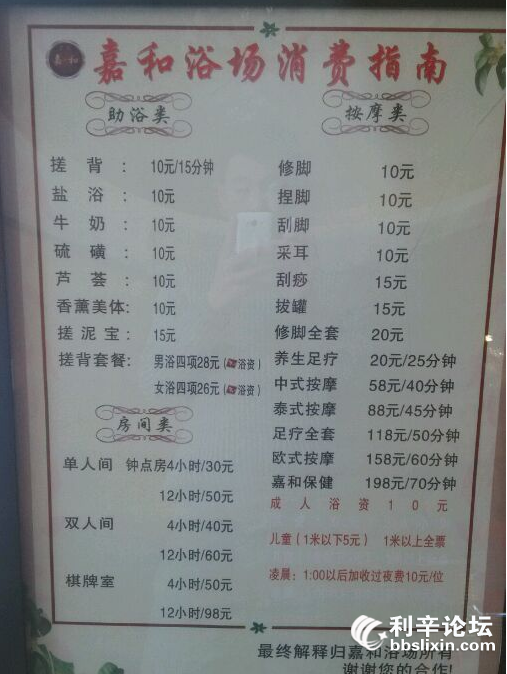 嘉和
嘉和浴场消费指南
助浴类
搓背: 10元/15分钟
盐浴: 10元
牛奶: 10元
硫磺: 10元
芦荟: 10元
香薰美体: 10元
搓泥宝: 15元
搓背套餐: 男浴四项28元(浴资)
女浴四项26元(浴资)
房间类
单人间 钟点房4小时/30元
12小时/50元
双人间 4小时/40元
12小时/60元
棋牌室 4小时/50元
12小时/98元
按摩类
修脚 10元
捏脚 10元
刮脚 10元
采耳 10元
刮痧 15元
拔罐 15元
修脚全套 20元
养生足疗 20元/25分钟
中式按摩 58元/40分钟
泰式按摩 88元/45分钟
足疗全套 118元/50分钟
欧式按摩 158元/60分钟
嘉和保健 198元/70分钟
成人浴资10元
儿童(1米以下5元) 1米以上全票
凌晨:1:00以后加收过夜费10元/位
最终解释归嘉和浴场所有
谢谢您的合作!
利辛论坛
bbslixin.com